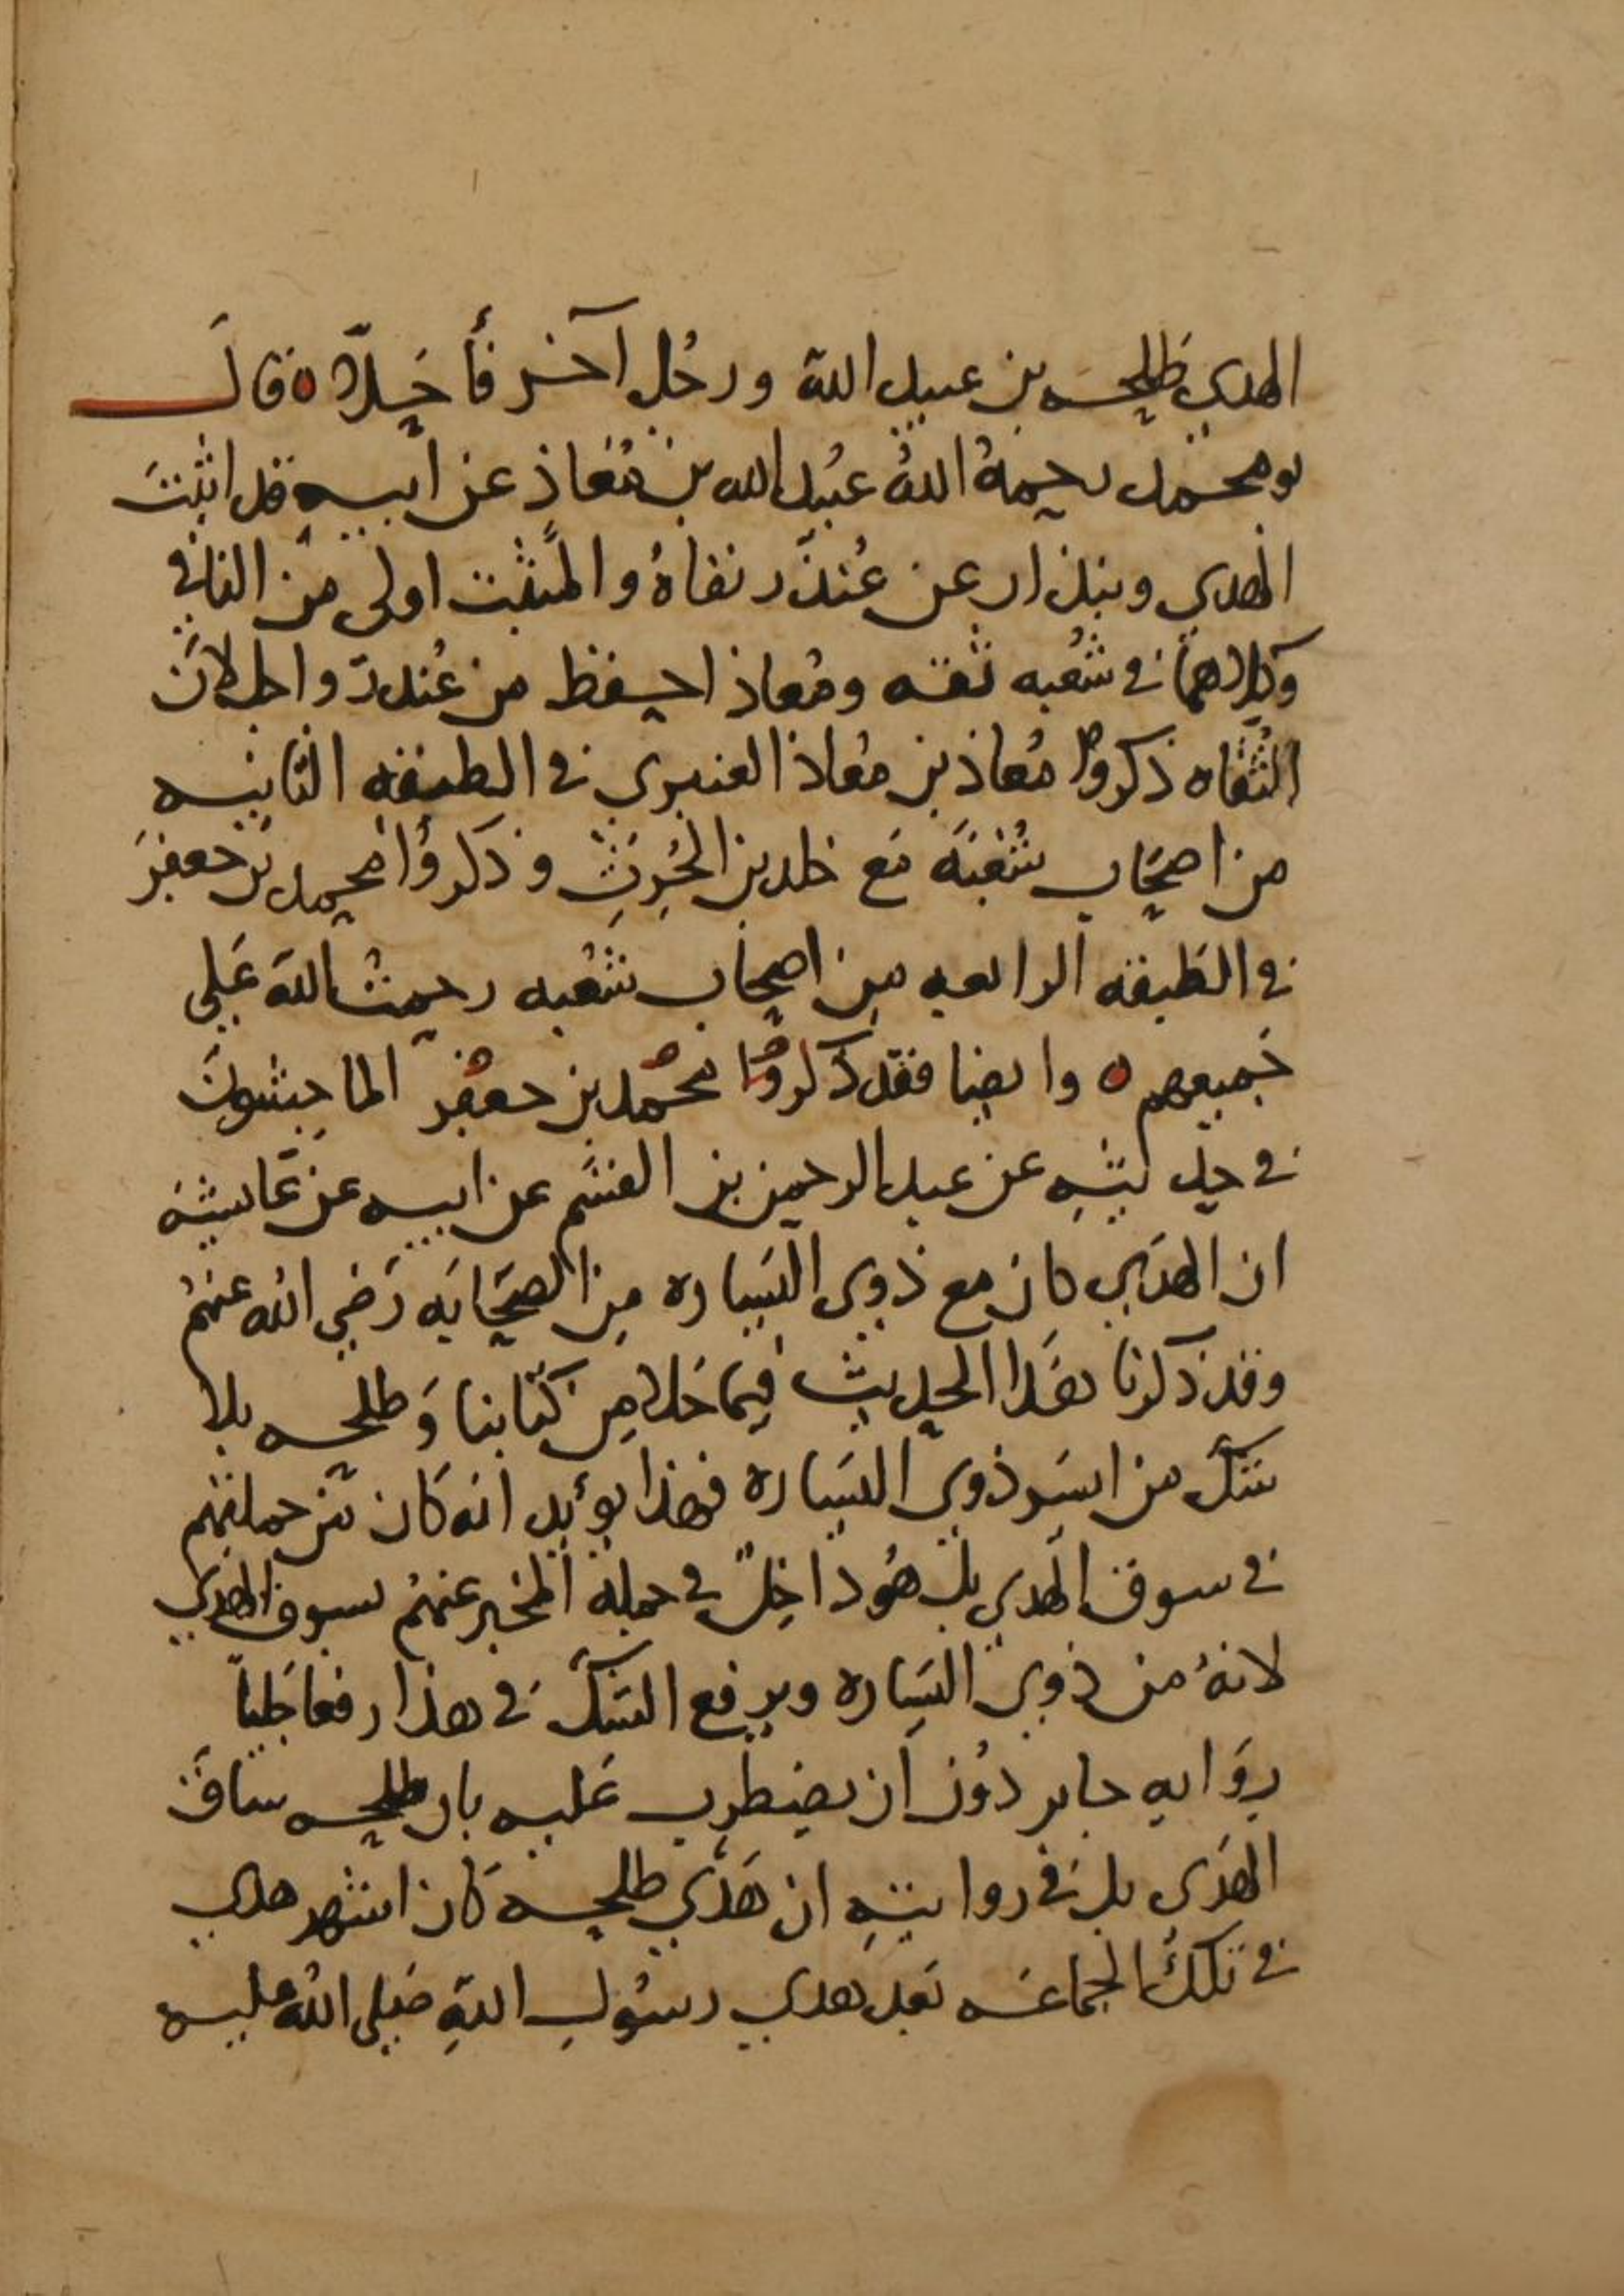 الهدي طلحه بن عبيد الله ورجل آخر فأحلا ٥ قال
بو محمد رحمهُ اللهُ عبيد الله بن مُعاذ عن ابيه قد اثبتَ
الهدي وبندار عن غُندَر نفاهُ والمثبت اولى من النافي
وكلاهما في شعبه ثقه ومُعاذ احفظ من غندر واجل لانَّ
الثقاه ذكروا مُعاذ بن معاذ العنبري في الطبقه الثانيه
من اصحاب شُعبَه مَع خلد بن الحرث وذكروا محمد بن جعفرَ
في الطبقه الرابعه من اصحاب شعبه رحمتُ الله عَلى
جَميعهم ٥ وايضا فقد ذكروا محمد بن جعفر الماجشون
في حديثِه عن عبد الرحمن بن القسم عن ابيه عن عَايشه
ان الهدي كان مع ذوي اليَسَاره من الصَحَابَه رَضي الله عنهُم
وقد ذكرنا هَذا الحديث فيما خلا من كتابنا وَطلحه بلا
شك من ايسَر ذوي اليسَاره فهذا يؤيد انه كان من جملتهم
في سوق الهدي بل هُو داخِلٌ في جملة المخبر عنهُم بسوق الهدي
لانهُ من ذوي اليَسَاره ويرفع الشكَّ في هذا رفعا جَليّاً
روَايه جابر دوُن اَن يضطرب عَليه بان طلحه ساقَ
الهَدي بل في روايتِه ان هَدْي طلحه كَان اشهر هدي
في تلك الجماعَه بَعد هدي رسُولِ اللهِ صَلى اللهُ عليه